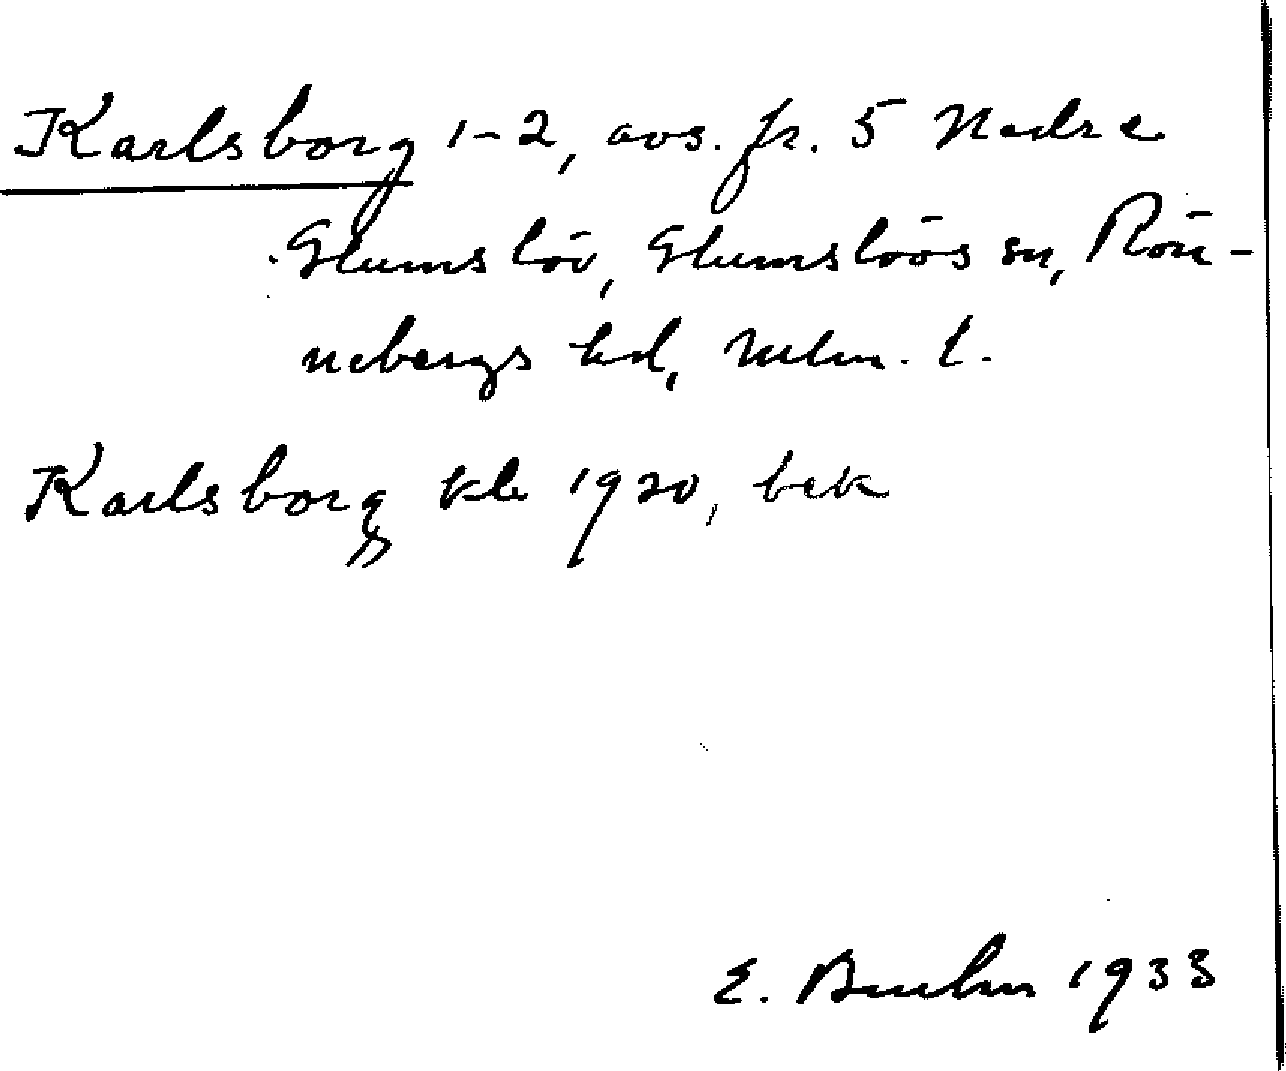 Karlsborg 1-2, avs. fr. 5 Nedre
Glumslöv, Glumslövs sn, Rön-
nebergs hd, Mlm. l.
Karlsborg 1920, bek
E. 1933